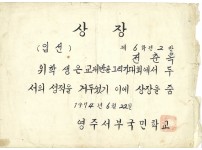 상장
(입선) 제 6학년 2반
권춘목
위 학생은 교내반공그리기대회에서 두
서의 성적을 거두었기 이에 상장을 줌
1974년 6월 22일
영주서부국민학교